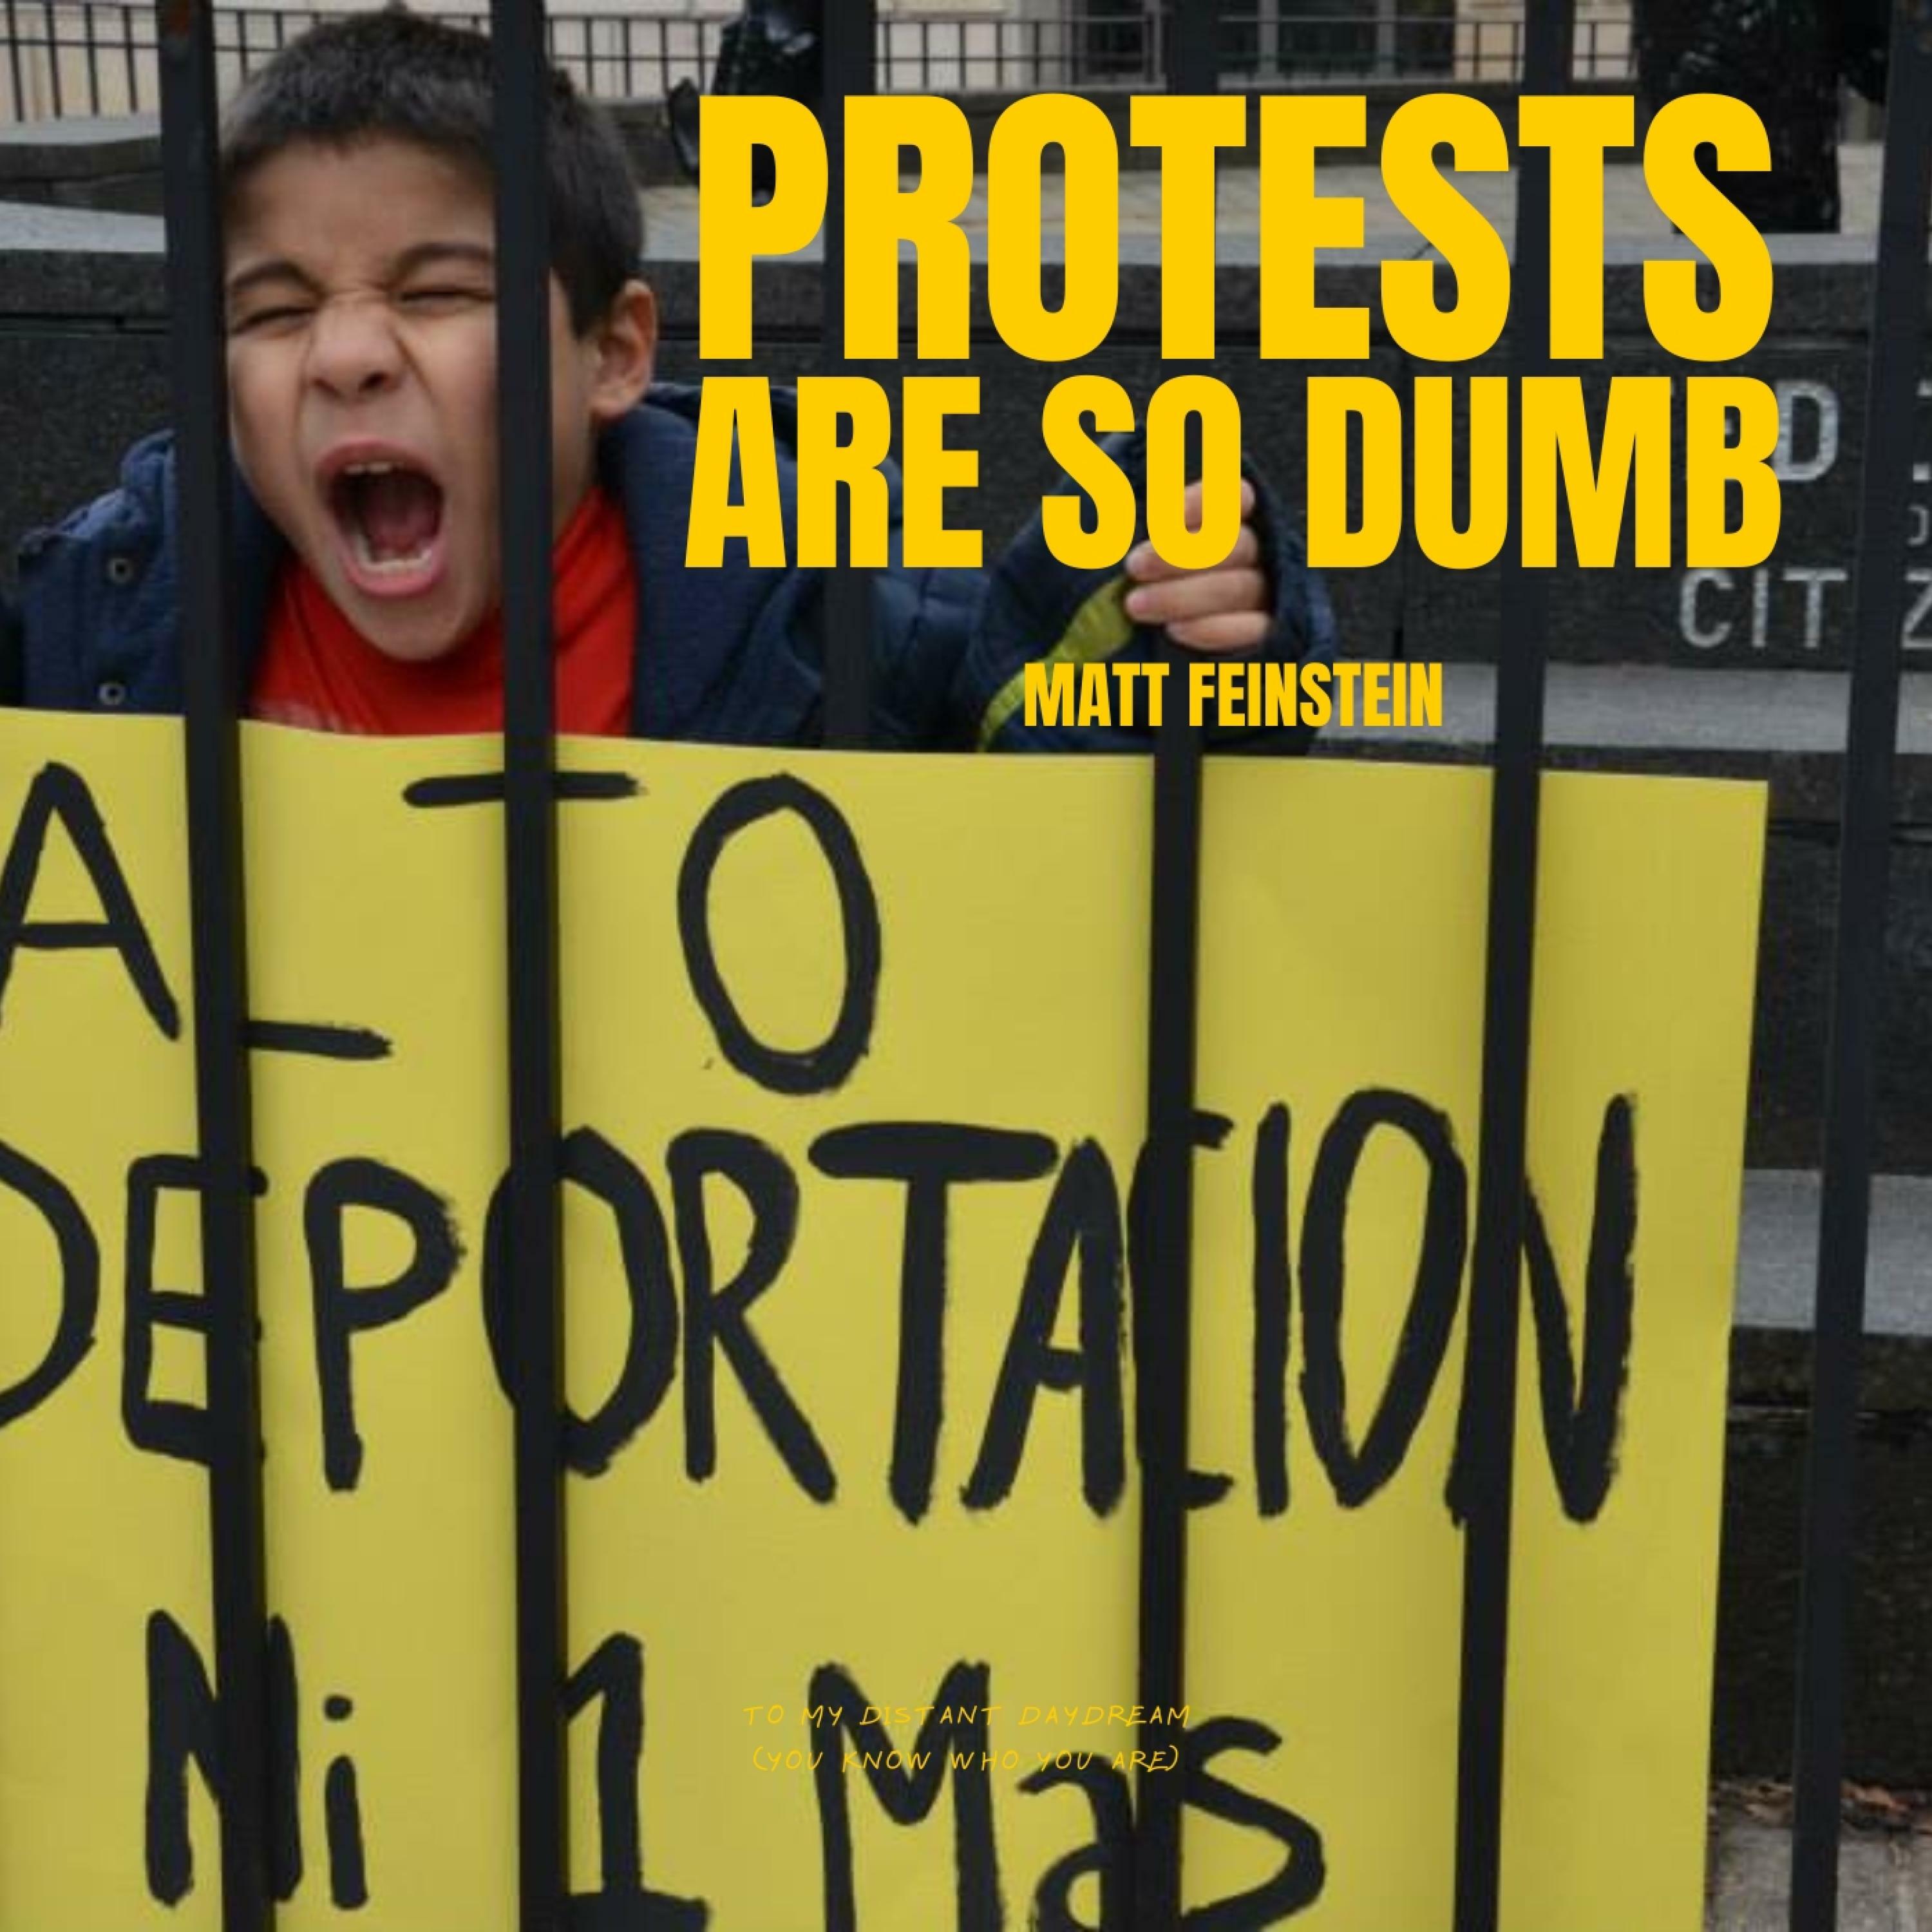 PROTESTS
ARE SO DUMB
MATT FEINSTEIN
CIT
ALTO
DEPORTACION
Ni 1 Mas
TO MY DISTANT DAYDREAM
(YOU KNOW WHO YOU ARE)